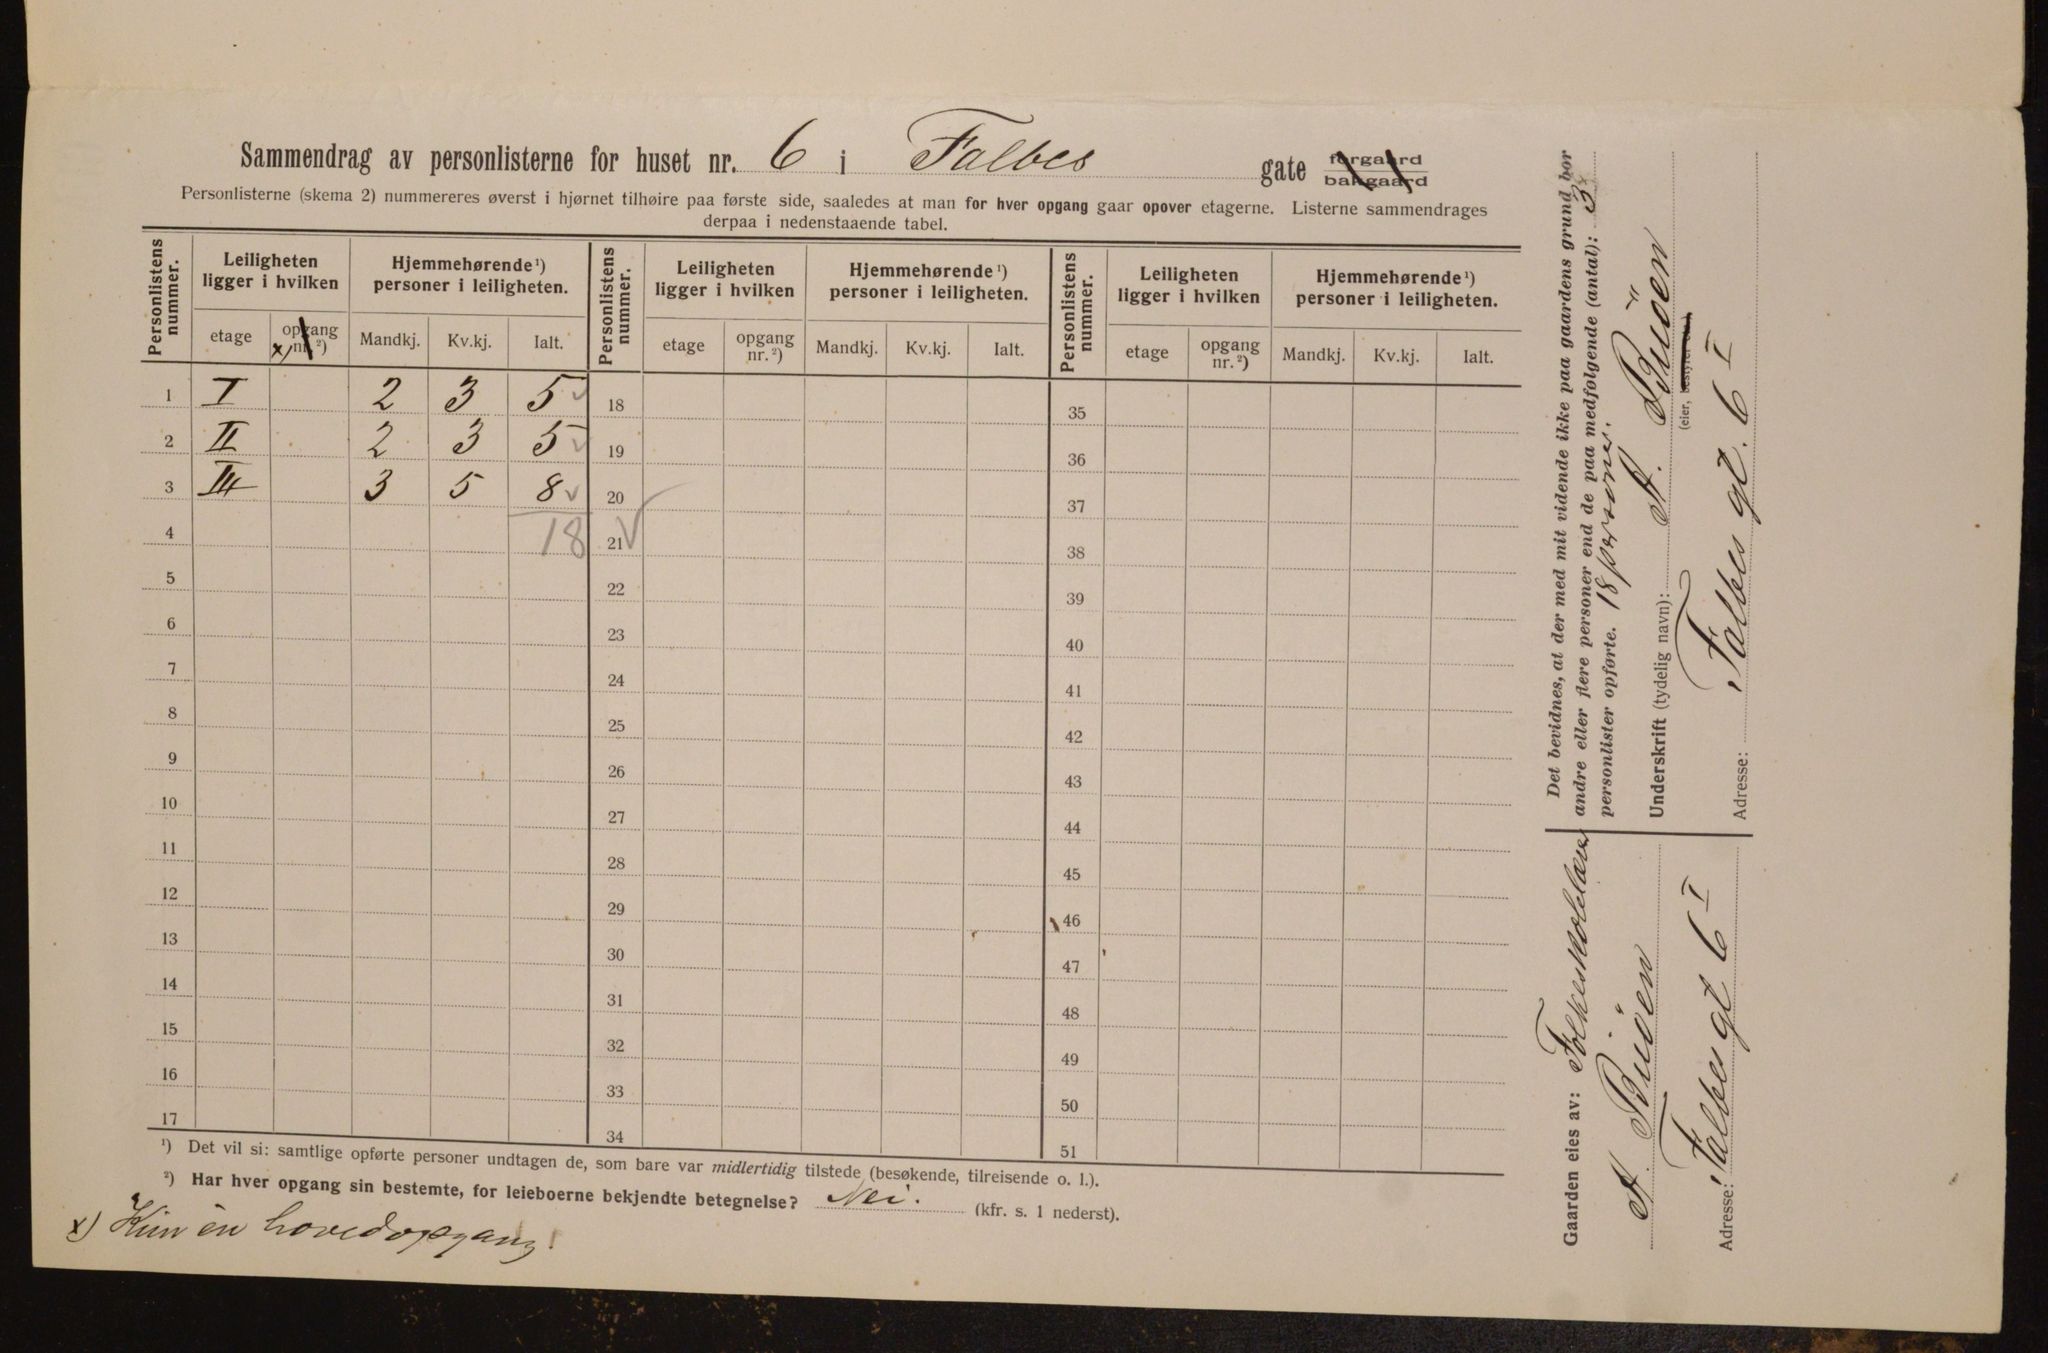 Sammendrag av personlisterne for huset nr. 6 i Falbes gate forgaard bakgaard
Personlisterne (skema 2) nummereres øverst i hjørnet tilhøire paa første side, saaledes at man for hver opgang gaar opover etagerne. Listerne sammendrages
derpaa i nedenstaaende tabel.
Personlistens nummer. Leiligheten ligger i hvilken Hjemmehørende ¹) personer i leiligheten. Personlistens nummer. Leiligheten ligger i hvilken Hjemmehørende ¹) personer i leiligheten. Personlistens nummer. Leiligheten ligger i hvilken Hjemmehørende ¹) personer i leiligheten.
etage x) opgang nr. ²) Mandkj. Kv.kj. Ialt. etage opgang nr. ²) Mandkj. Kv.kj. Ialt. etage opgang nr. ²) Mandkj. Kv.kj. Ialt.
1 I 2 3 5 18 35
2 II 2 3 5 19 36
3 III 3 5 8 20 37
4 18 21 38
5 22 39
6 23 40
7 24 41
8 25 42
9 26 43
10 27 44
11 28 45
12 29 46
13 30 47
14 31 48
15 32 49
16 33 50
17 34 51
¹) Det vil si: samtlige opførte personer undtagen de, som bare var midlertidig tilstede (besøkende, tilreisende o. l.).
²) Har hver opgang sin bestemte, for leieboerne bekjendte betegnelse? Nei. (kfr. s. 1 nederst).
x) Kun én hovedopgang.
Det bevidnes, at der med mit vidende ikke paa gaardens grund bor
andre eller flere personer end de paa medfølgende (antal): 3
personlister opførte. 18 personer.
Underskrift (tydelig navn): A. Büöen
(eier, bestyrer
Adresse: Falbes gt. 6 I
Gaarden eies av: Folkeskolelærer
A. Büöen
Adresse: Falbes gt 6 I